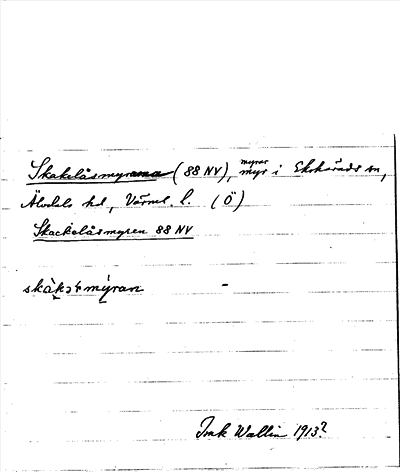 Skakelåsmyrarna (88 NV), myrar myr i Ekshärads sn,
Älvdals hd, Värml. l. (Ö)
Skackelåsmyren 88 NV
–
Wallin 1913?